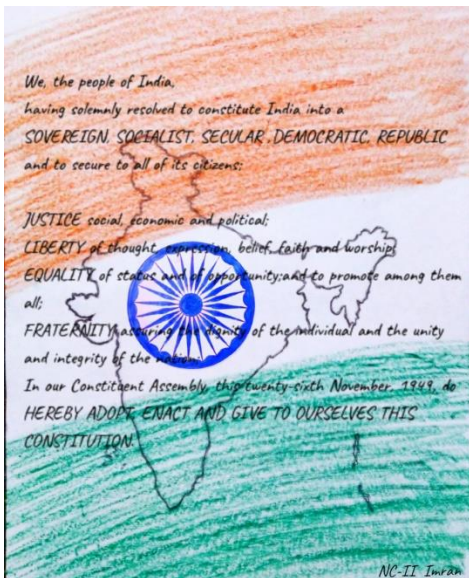 We, the people of India,
having solemnly resolved to constitute India into a
SOVEREIGN, SOCIALIST, SECULAR ,DEMOCRATIC, REPUBLIC
and to secure to all of its citizens:
JUSTICE social, economic and political;
LIBERTY of thought, expression, belief, faith and worship;
EQUALITY of status and of opportunity;and to promote among them
all;
FRATERNITY assuring the dignity of the individual and the unity
and integrity of the nation;
In our Constituent Assembly, this twenty-sixth November, 1949, do
HEREBY ADOPT, ENACT AND GIVE TO OURSELVES THIS
CONSTITUTION.
NC-II Imran